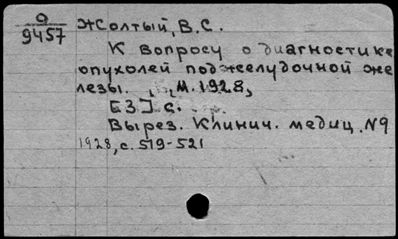 О
9457
Жолтый, В.С.
К вопросу о диагностике
опухолей поджелудочной же
лезы. М. 1928,
[3] с.
Вырез. Клинич. медиц. №9
1928, с. 519-521